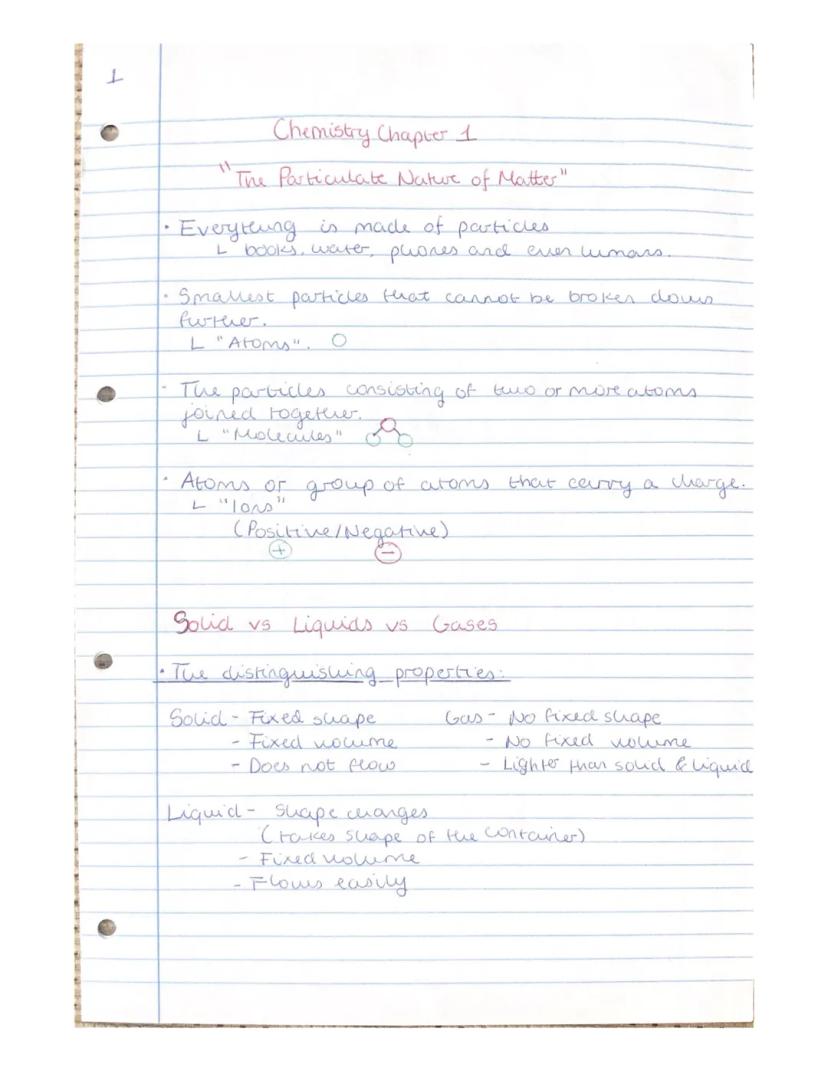 1
Chemistry Chapter 1
"The Particulate Nature of Matter"
• Everything is made of particles
L books, water, phones and even humans.
• Smallest particles that cannot be broken down
further.
L "Atoms".
• The particles consisting of two or more atoms
joined together.
L "Molecules"
• Atoms or group of atoms that carry a charge.
L "Ions"
(Positive/Negative)
+ −
Solid vs Liquids vs Gases
• The distinguishing properties:
Solid - Fixed shape
- Fixed volume
- Does not flow
Gas - No fixed shape
- No fixed volume
- Lighter than solid & liquid
Liquid - Shape changes
(takes shape of the container)
- Fixed volume
- Flows easily